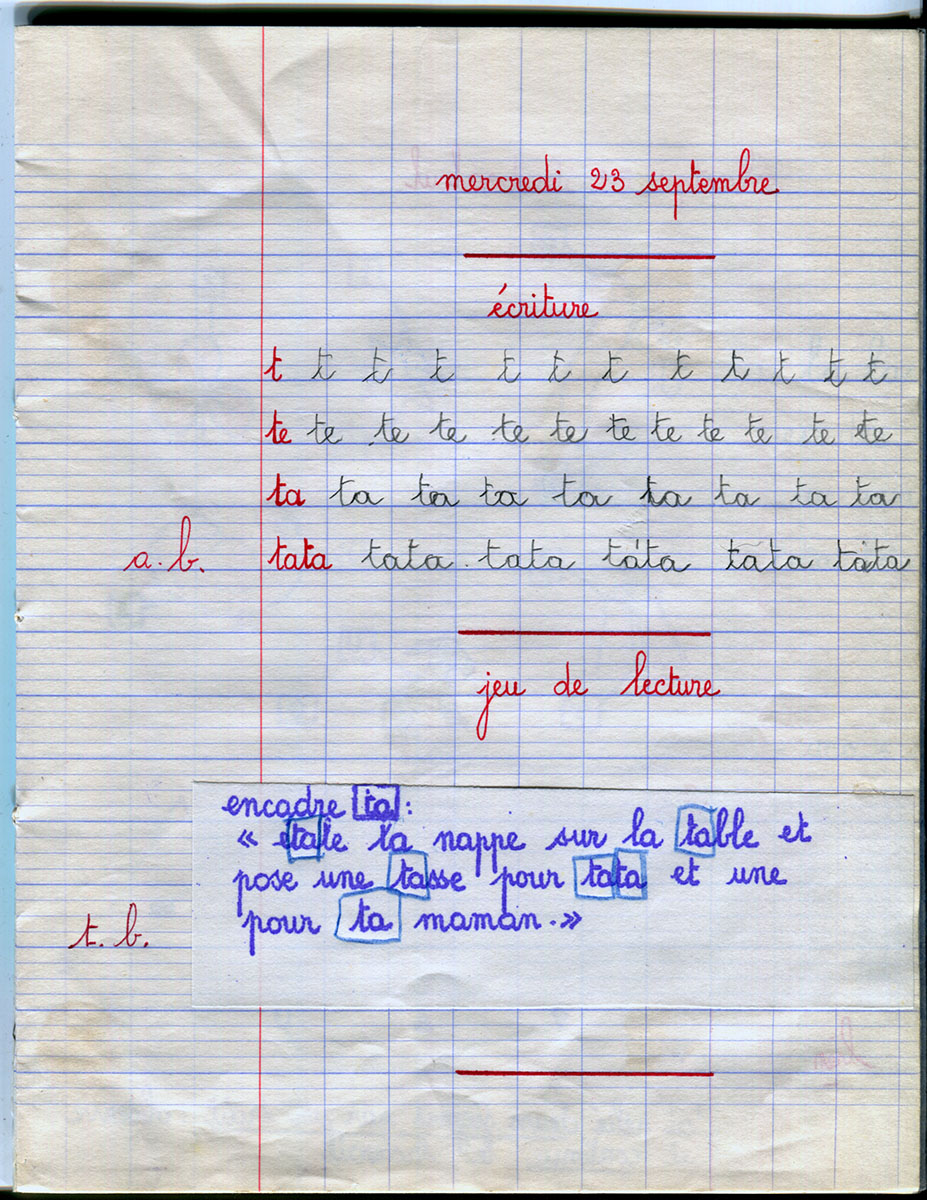 mercredi 23 septembre
écriture
t t t t t t t t t t t t
te te te te te te te te te te te te
ta ta ta ta ta ta ta ta ta
a.b. tata tata. tata tata tata tata
jeu de lecture
encadre ta :
« etale ta nappe sur la table et
pose une tasse pour tata et une
t.b. pour ta maman. »